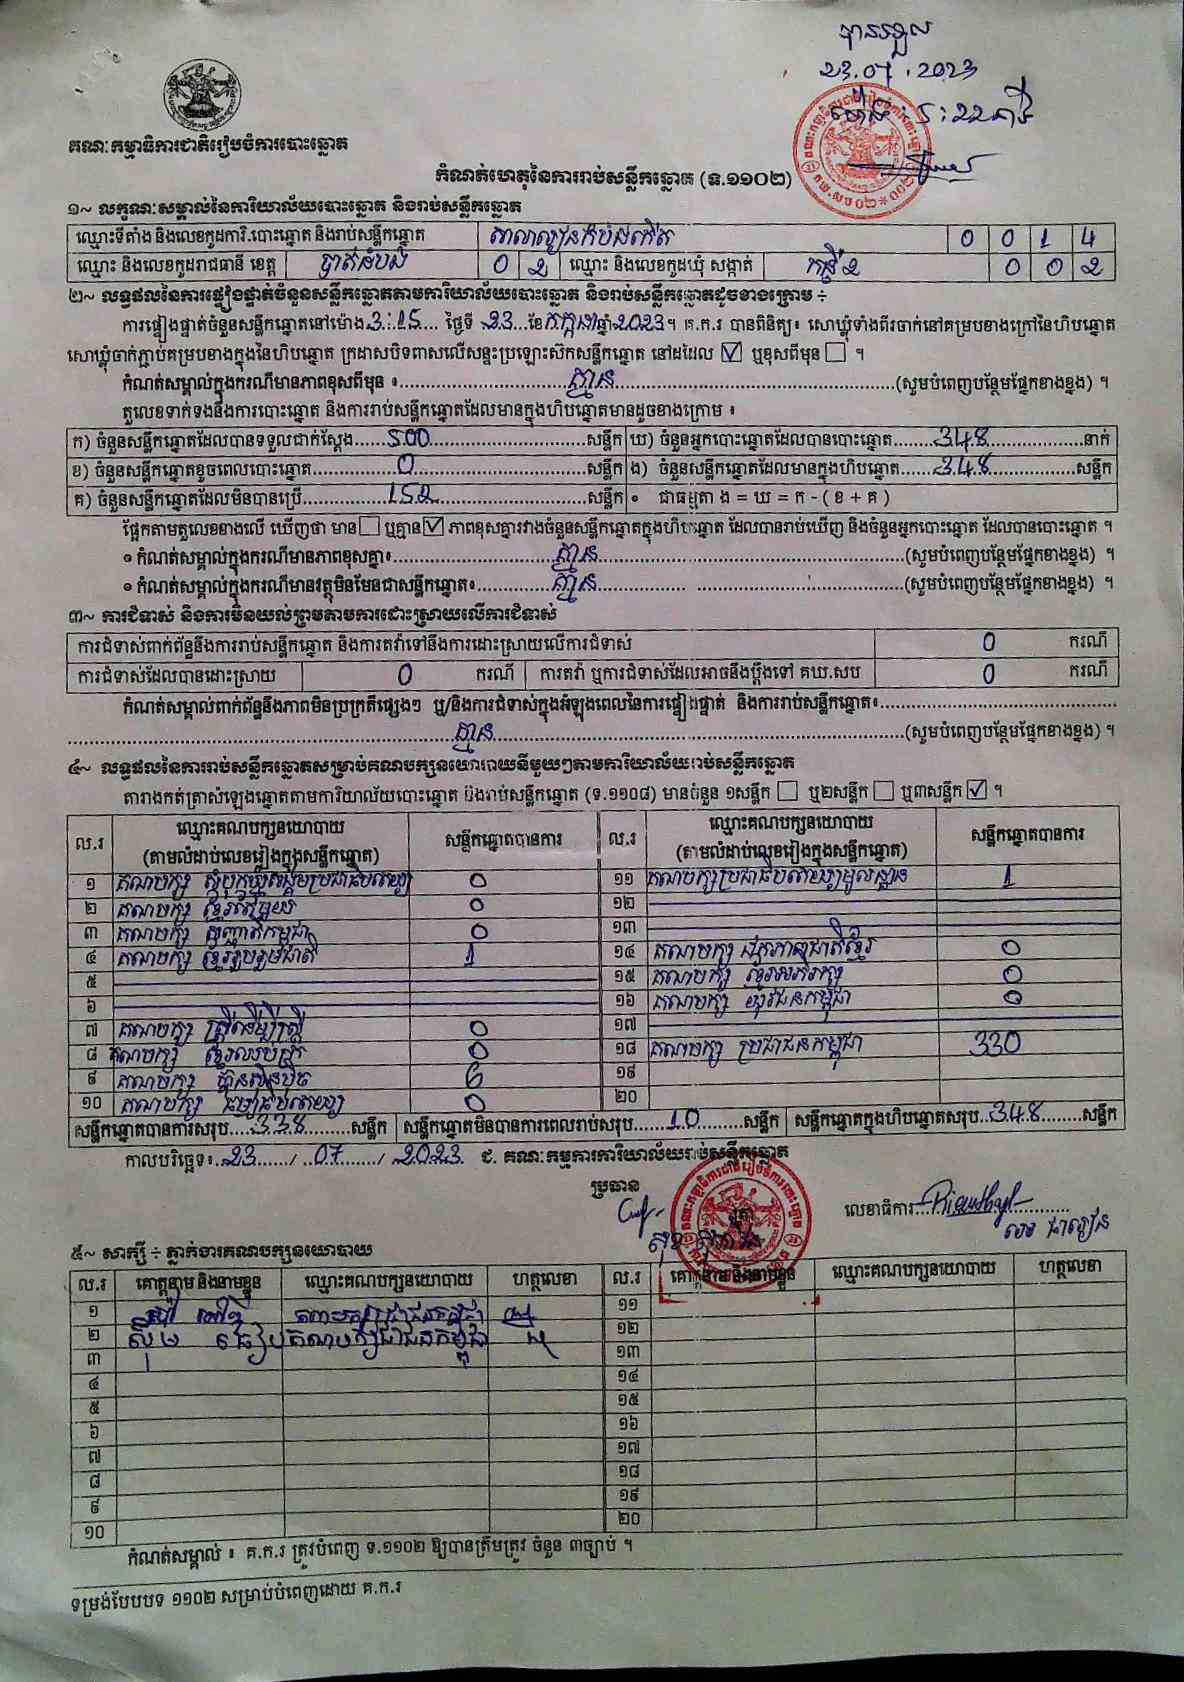 បានទទួល
23.07.2023
ម៉ោង ៥:២២នាទី
គណៈកម្មាធិការជាតិរៀបចំការបោះឆ្នោត
កំណត់ហេតុនៃការរាប់សន្លឹកឆ្នោត (ទ.១១០២)
១~ លក្ខណៈសម្គាល់នៃការិយាល័យបោះឆ្នោត និងរាប់សន្លឹកឆ្នោត
ឈ្មោះទីតាំង និងលេខកូដការិ.បោះឆ្នោត និងរាប់សន្លឹកឆ្នោត 0 0 1 4
ឈ្មោះ និងលេខកូដរាជធានី ខេត្ត បាត់ដំបង 0 2 ឈ្មោះ និងលេខកូដឃុំ សង្កាត់ កន្ទឺ2 0 0 2
២~ លទ្ធផលនៃការផ្ទៀងផ្ទាត់ចំនួនសន្លឹកឆ្នោតតាមការិយាល័យបោះឆ្នោត និងរាប់សន្លឹកឆ្នោតដូចខាងក្រោម ÷
ការផ្ទៀងផ្ទាត់ចំនួនសន្លឹកឆ្នោតនៅម៉ោង 3:15 ថ្ងៃទី 23 ខែ កក្កដា ឆ្នាំ 2023។ គ.ក.រ បានពិនិត្យ៖ សោឃ្លុំទាំងពីរចាក់នៅគម្របខាងក្រៅនៃហិបឆ្នោត
សោឃ្លុំចាក់ភ្ជាប់គម្របខាងក្នុងនៃហិបឆ្នោត ក្រដាសបិទពាសលើសន្ទះប្រឡោះស៊កសន្លឹកឆ្នោត នៅដដែល ☑ ឬខុសពីមុន ☐ ។
កំណត់សម្គាល់ក្នុងករណីមានភាពខុសពីមុន ៖ គ្មាន (សូមបំពេញបន្ថែមផ្នែកខាងខ្នង) ។
តួលេខទាក់ទងនឹងការបោះឆ្នោត និងការរាប់សន្លឹកឆ្នោតដែលមានក្នុងហិបឆ្នោតមានដូចខាងក្រោម ៖
ក) ចំនួនសន្លឹកឆ្នោតដែលបានទទួលជាក់ស្តែង 500 សន្លឹក ឃ) ចំនួនអ្នកបោះឆ្នោតដែលបានបោះឆ្នោត 348 នាក់
ខ) ចំនួនសន្លឹកឆ្នោតខូចពេលបោះឆ្នោត 0 សន្លឹក ង) ចំនួនសន្លឹកឆ្នោតដែលមានក្នុងហិបឆ្នោត 348 សន្លឹក
គ) ចំនួនសន្លឹកឆ្នោតដែលមិនបានប្រើ 152 សន្លឹក ជាធម្មតា ង = ឃ = ក - ( ខ + គ )
ផ្អែកតាមតួលេខខាងលើ ឃើញថា មាន ☐ ឬគ្មាន ☑ ភាពខុសគ្នារវាងចំនួនសន្លឹកឆ្នោតក្នុងហិបឆ្នោត ដែលបានរាប់ឃើញ និងចំនួនអ្នកបោះឆ្នោត ដែលបានបោះឆ្នោត ។
កំណត់សម្គាល់ក្នុងករណីមានភាពខុសគ្នា៖ គ្មាន (សូមបំពេញបន្ថែមផ្នែកខាងខ្នង) ។
កំណត់សម្គាល់ក្នុងករណីមានវត្ថុមិនមែនជាសន្លឹកឆ្នោត៖ គ្មាន (សូមបំពេញបន្ថែមផ្នែកខាងខ្នង) ។
៣~ ការជំទាស់ និងការមិនយល់ព្រមតាមការដោះស្រាយលើការជំទាស់
ការជំទាស់ពាក់ព័ន្ធនឹងការរាប់សន្លឹកឆ្នោត និងការតវ៉ាទៅនឹងការដោះស្រាយលើការជំទាស់ 0 ករណី
ការជំទាស់ដែលបានដោះស្រាយ 0 ករណី ការតវ៉ា ឬការជំទាស់ដែលអាចនឹងប្តឹងទៅ គឃ.សប 0 ករណី
កំណត់សម្គាល់ពាក់ព័ន្ធនឹងភាពមិនប្រក្រតីផ្សេងៗ ឬ/និងការជំទាស់ក្នុងអំឡុងពេលនៃការផ្ទៀងផ្ទាត់ និងការរាប់សន្លឹកឆ្នោត៖
គ្មាន (សូមបំពេញបន្ថែមផ្នែកខាងខ្នង) ។
៤~ លទ្ធផលនៃការរាប់សន្លឹកឆ្នោតសម្រាប់គណបក្សនយោបាយនីមួយៗតាមការិយាល័យរាប់សន្លឹកឆ្នោត
តារាងកត់ត្រាសំឡេងឆ្នោតតាមការិយាល័យបោះឆ្នោត និងរាប់សន្លឹកឆ្នោត (ទ.១១០៨) មានចំនួន ១សន្លឹក ☐ ឬ២សន្លឹក ☐ ឬ៣សន្លឹក ☑ ។
ល.រ ឈ្មោះគណបក្សនយោបាយ (តាមលំដាប់លេខរៀងក្នុងសន្លឹកឆ្នោត) សន្លឹកឆ្នោតបានការ ល.រ ឈ្មោះគណបក្សនយោបាយ (តាមលំដាប់លេខរៀងក្នុងសន្លឹកឆ្នោត) សន្លឹកឆ្នោតបានការ
១ គណបក្ស សំបុកឃ្មុំសង្គមប្រជាធិបតេយ្យ 0 ១១ គណបក្សប្រជាធិបតេយ្យមូលដ្ឋាន 1
២ គណបក្ស ខ្មែរតែមួយ 0 ១២
៣ គណបក្ស សញ្ជាតិកម្ពុជា 0 ១៣
៤ គណបក្ស ខ្មែររួបរួមជាតិ 1 ១៤ គណបក្ស រស្មីជាតិខ្មែរ 0
៥ ១៥ គណបក្ស ខ្មែរអភិរក្ស 0
៦ ១៦ គណបក្ស យុវជនកម្ពុជា 0
៧ គណបក្ស ស្ត្រីដើម្បីស្ត្រី 0 ១៧
៨ គណបក្ស ខ្មែរឈប់ក្រ 0 ១៨ គណបក្ស ប្រជាជនកម្ពុជា 330
៩ គណបក្ស ហ្វ៊ុនស៊ិនប៉ិច 6 ១៩
១០ គណបក្ស ធម្មាធិបតេយ្យ 0 ២០
សន្លឹកឆ្នោតបានការសរុប 338 សន្លឹក សន្លឹកឆ្នោតមិនបានការពេលរាប់សរុប 10 សន្លឹក សន្លឹកឆ្នោតក្នុងហិបឆ្នោតសរុប 348 សន្លឹក
កាលបរិច្ឆេទ៖ 23 / 07 / 2023 ជ. គណៈកម្មការការិយាល័យរាប់សន្លឹកឆ្នោត
ប្រធាន
លេខាធិការ
៥~ សាក្សី ÷ ភ្នាក់ងារគណបក្សនយោបាយ
ល.រ គោត្តនាម និងនាមខ្លួន ឈ្មោះគណបក្សនយោបាយ ហត្ថលេខា ល.រ គោត្តនាម និងនាមខ្លួន ឈ្មោះគណបក្សនយោបាយ ហត្ថលេខា
១ គណបក្សប្រជាជនកម្ពុជា ១១
២ គណបក្សប្រជាជនកម្ពុជា ១២
៣ ១៣
៤ ១៤
៥ ១៥
៦ ១៦
៧ ១៧
៨ ១៨
៩ ១៩
១០ ២០
កំណត់សម្គាល់ ៖ គ.ក.រ ត្រូវបំពេញ ទ.១១០២ ឱ្យបានត្រឹមត្រូវ ចំនួន ៣ច្បាប់ ។
ទម្រង់បែបបទ ១១០២ សម្រាប់បំពេញដោយ គ.ក.រ